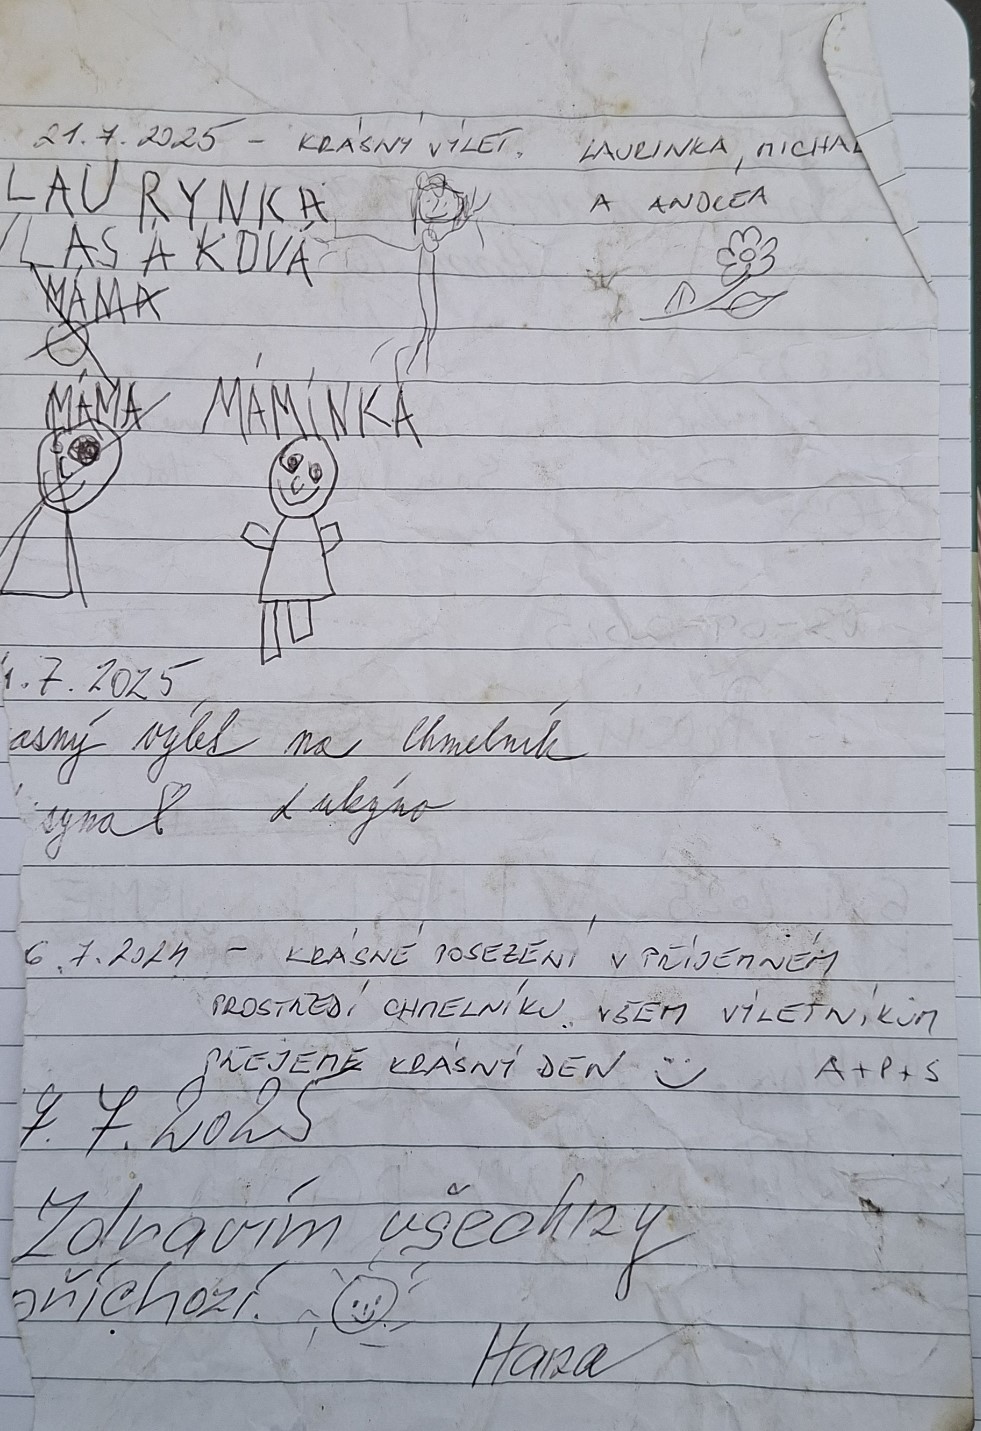 21.7.2025 - KRÁSNÝ VÝLET. LAURINKA, MICHAL
A ANDREA
LAURYNKA
VLASÁKOVÁ
MÁMA
MÁMA MÁMÍNKA
1.7.2025
asný výlet na Chmelník
syna
6.7.2024 - KRÁSNÉ POSEZENÍ V PŘÍJEMNÉM
PROSTŘEDÍ CHMELNÍKU. VŠEM VÝLETNÍKŮM
PŘEJEME KRÁSNÝ DEN A+P+S
7.7.2025
Zdravím všechny
příchozí.
Hana